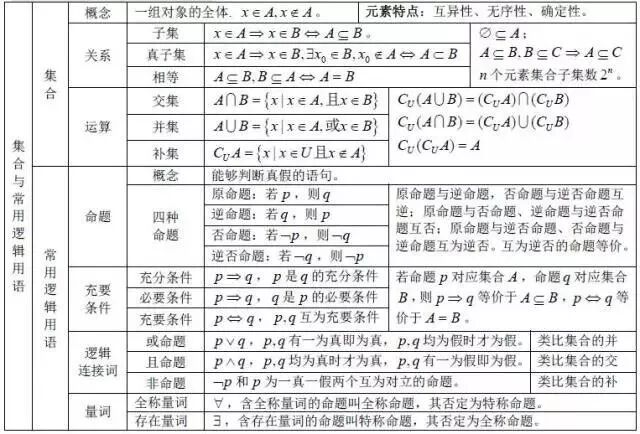 集合与常用逻辑用语
集合
概念
一组对象的全体. x∈A, x∉A。
元素特点：互异性、无序性、确定性。
关系
子集
x∈A⇒x∈B⇔A⊆B。
真子集
x∈A⇒x∈B,∃x₀∈B, x₀∉A⇔A⊂B
相等
A⊆B, B⊆A⇔A=B
∅⊆A；
A⊆B, B⊆C⇒A⊆C
n个元素集合子集数2ⁿ。
运算
交集
A∩B={x|x∈A,且x∈B}
并集
A∪B={x|x∈A,或x∈B}
补集
C_U A={x|x∈U且x∉A}
C_U(A∪B)=(C_U A)∩(C_U B)
C_U(A∩B)=(C_U A)∪(C_U B)
C_U(C_U A)=A
常用逻辑用语
命题
概念
能够判断真假的语句。
四种
命题
原命题：若p，则q
逆命题：若q，则p
否命题：若¬p，则¬q
逆否命题：若¬q，则¬p
原命题与逆命题，否命题与逆否命题互
逆；原命题与否命题、逆命题与逆否命
题互否；原命题与逆否命题、否命题与
逆命题互为逆否。互为逆否的命题等价。
充要
条件
充分条件
p⇒q，p是q的充分条件
必要条件
p⇒q，q是p的必要条件
充要条件
p⇔q，p,q互为充要条件
若命题p对应集合A，命题q对应集合
B，则p⇒q等价于A⊆B，p⇔q等
价于A=B。
逻辑
连接词
或命题
p∨q，p,q有一为真即为真，p,q均为假时才为假。
类比集合的并
且命题
p∧q，p,q均为真时才为真，p,q有一为假即为假。
类比集合的交
非命题
¬p和p为一真一假两个互为对立的命题。
类比集合的补
量词
全称量词
∀，含全称量词的命题叫全称命题，其否定为特称命题。
存在量词
∃，含存在量词的命题叫特称命题，其否定为全称命题。